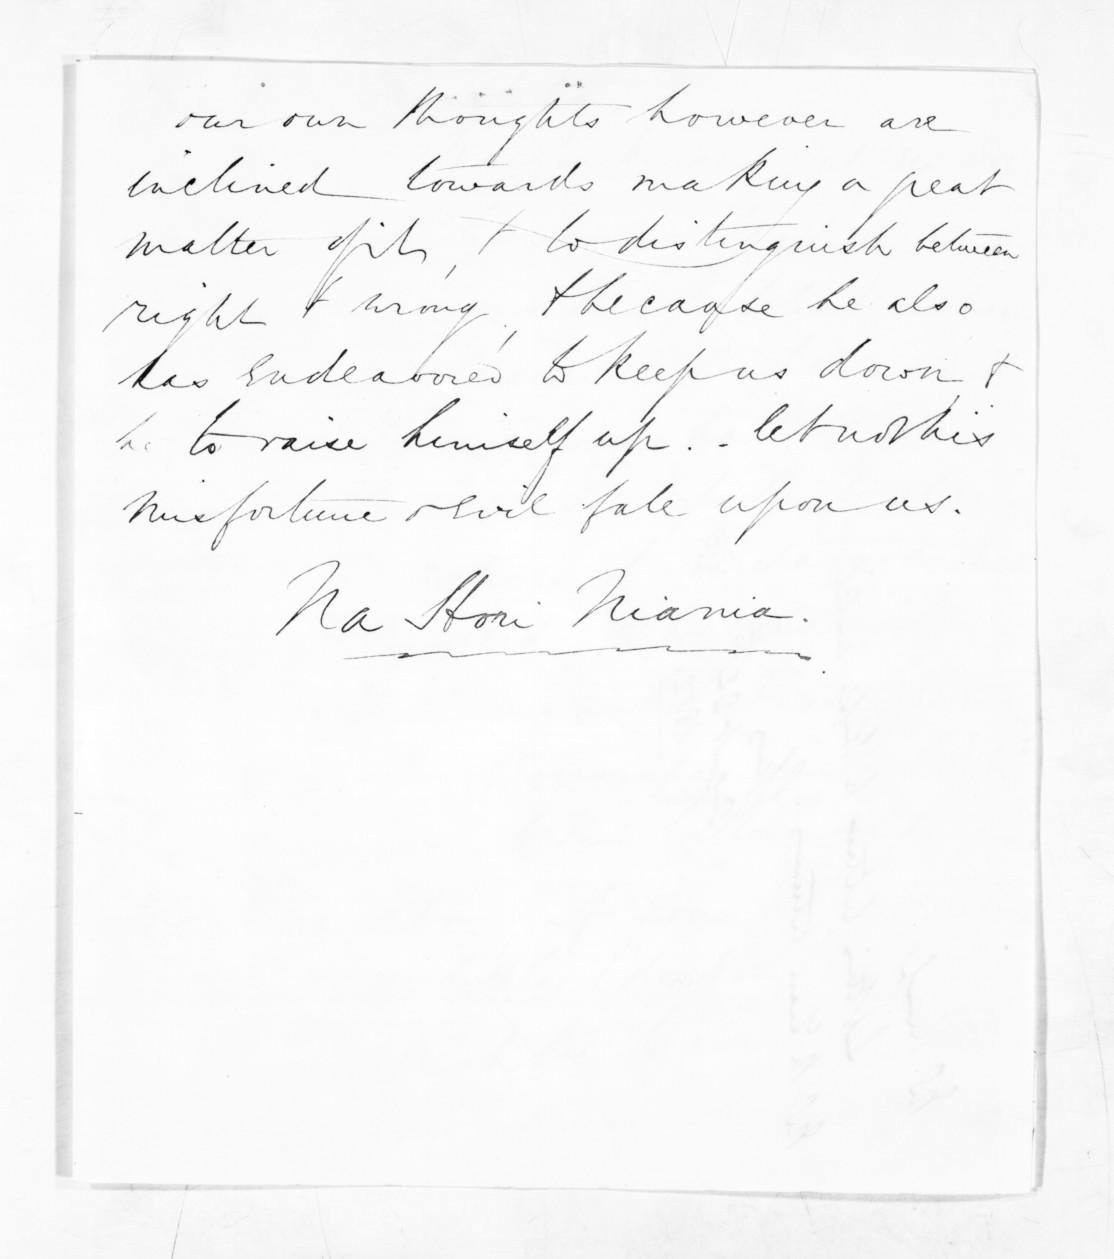 our own thoughts however are
inclined towards making a great
matter of it, & to distinguish between
right & wrong, & because he also
has endeavored to keep us down, &
to raise himself up. - let not his
misfortune & evil fall upon us.
Na Hori Niania.